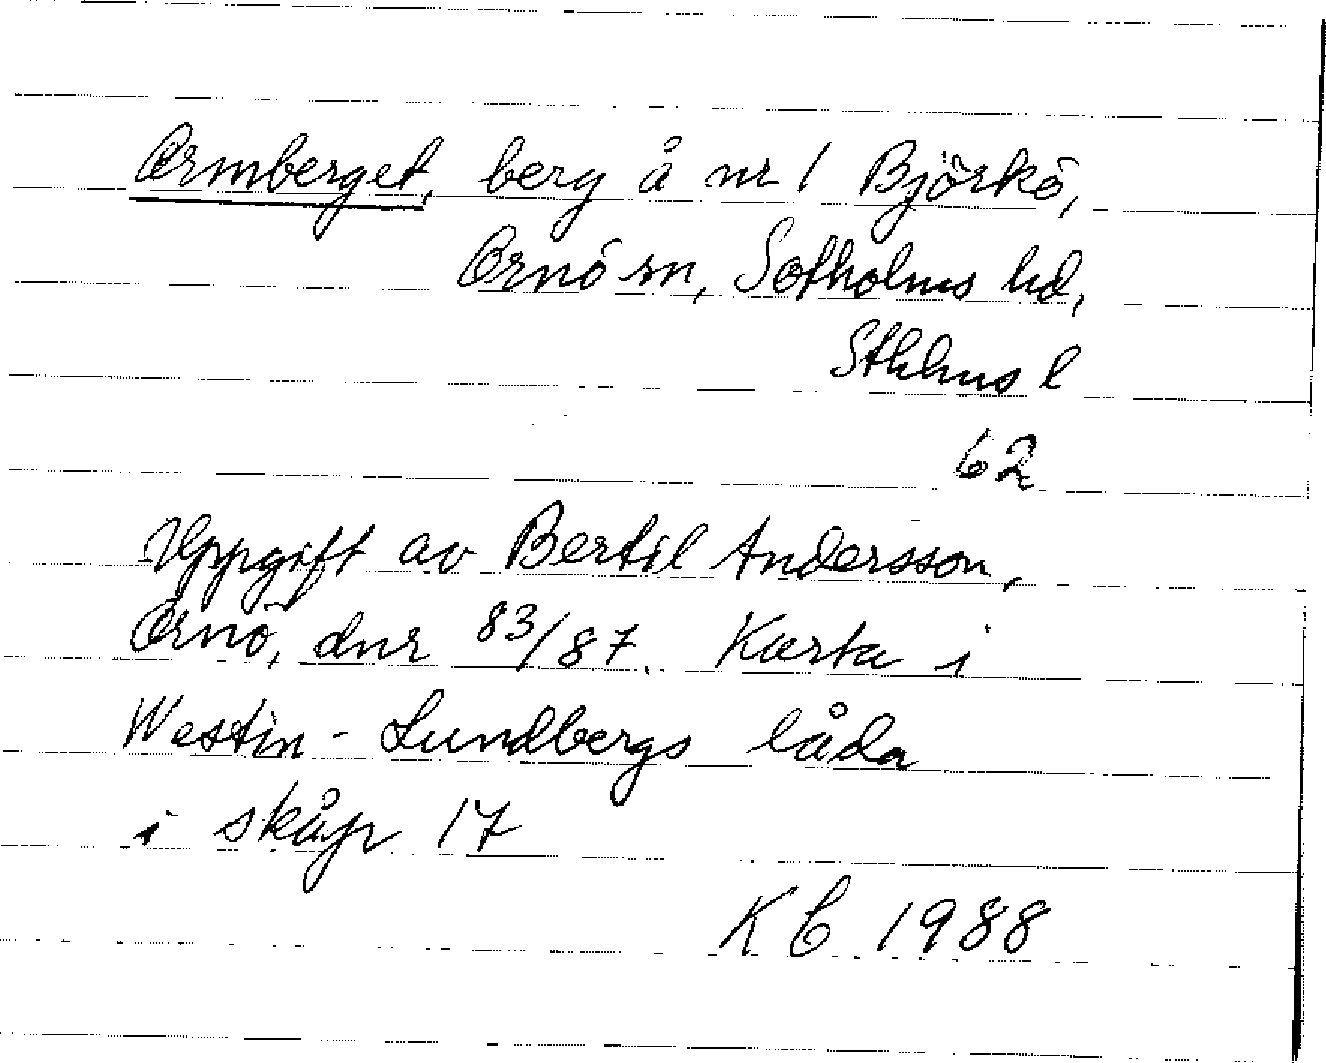 Ormberget, berg å nr 1 Björkö,
Ornö sn, Sotholms hd,
Sthlms l
62
Uppgift av Bertil Andersson,
Ornö, dnr 83/87. Karta i
Westin-Lundbergs låda
i skåp 17
KC 1988